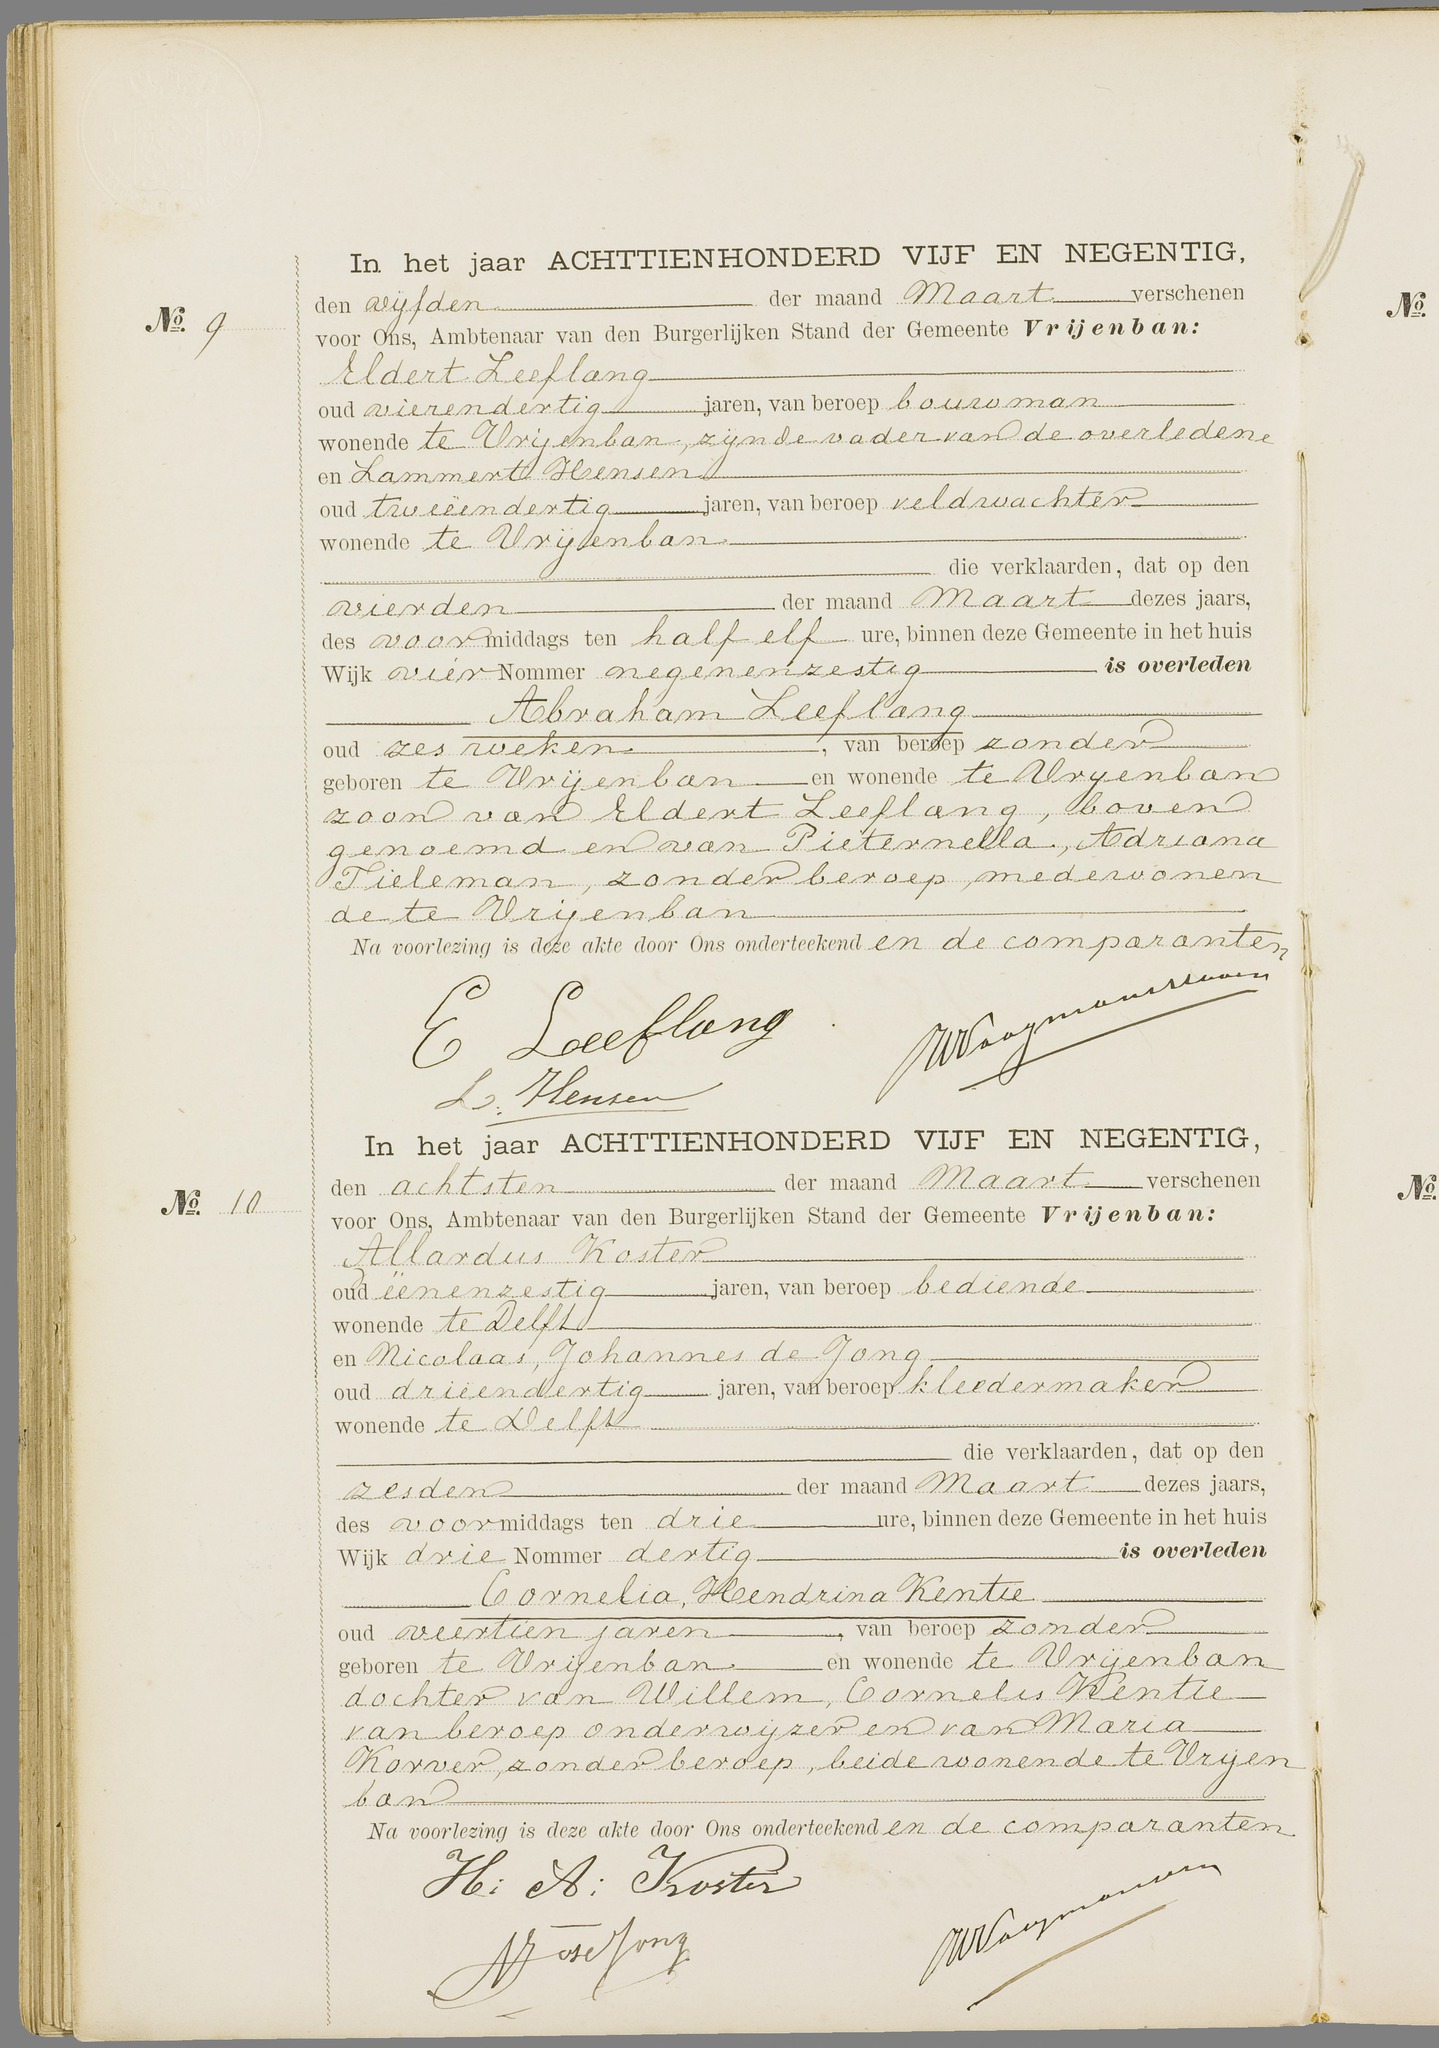 In het jaar ACHTTIENHONDERD VIJF EN NEGENTIG,
No. 9
den vijfden der maand Maart verschenen
voor Ons, Ambtenaar van den Burgerlijken Stand der Gemeente Vrijenban:
Eldert Leeflang
oud vierendertig jaren, van beroep bouwman
wonende te Vrijenban, zijnde vader van de overledene
en Lammert Hensen
oud tweeëndertig jaren, van beroep veldwachter
wonende te Vrijenban
die verklaarden, dat op den
vierden der maand Maart dezes jaars,
des voormiddags ten half elf ure, binnen deze Gemeente in het huis
Wijk vier Nommer negenenzestig is overleden
Abraham Leeflang
oud zes weken, van beroep zonder
geboren te Vrijenban en wonende te Vrijenban
zoon van Eldert Leeflang, boven
genoemd en van Pieternella, Adriana
Tieleman, zonder beroep, medewonen
de te Vrijenban
Na voorlezing is deze akte door Ons onderteekend en de comparanten
E Leeflang
L. Hensen
In het jaar ACHTTIENHONDERD VIJF EN NEGENTIG,
No. 10
den achtsten der maand Maart verschenen
voor Ons, Ambtenaar van den Burgerlijken Stand der Gemeente Vrijenban:
Allardus Koster
oud éénenzestig jaren, van beroep bediende
wonende te Delft
en Nicolaas, Johannes de Jong
oud drieëndertig jaren, van beroep kleedermaker
wonende te Delft
die verklaarden, dat op den
zesden der maand Maart dezes jaars,
des voormiddags ten drie ure, binnen deze Gemeente in het huis
Wijk drie Nommer dertig is overleden
Cornelia, Hendrina Kentie
oud veertien jaren, van beroep zonder
geboren te Vrijenban en wonende te Vrijenban
dochter van Willem, Cornelis Kentie
van beroep onderwijzer en van Maria
Korver, zonder beroep, beide wonende te Vrijen
ban
Na voorlezing is deze akte door Ons onderteekend en de comparanten
H: A: Koster
NJ de Jong
No.
No.